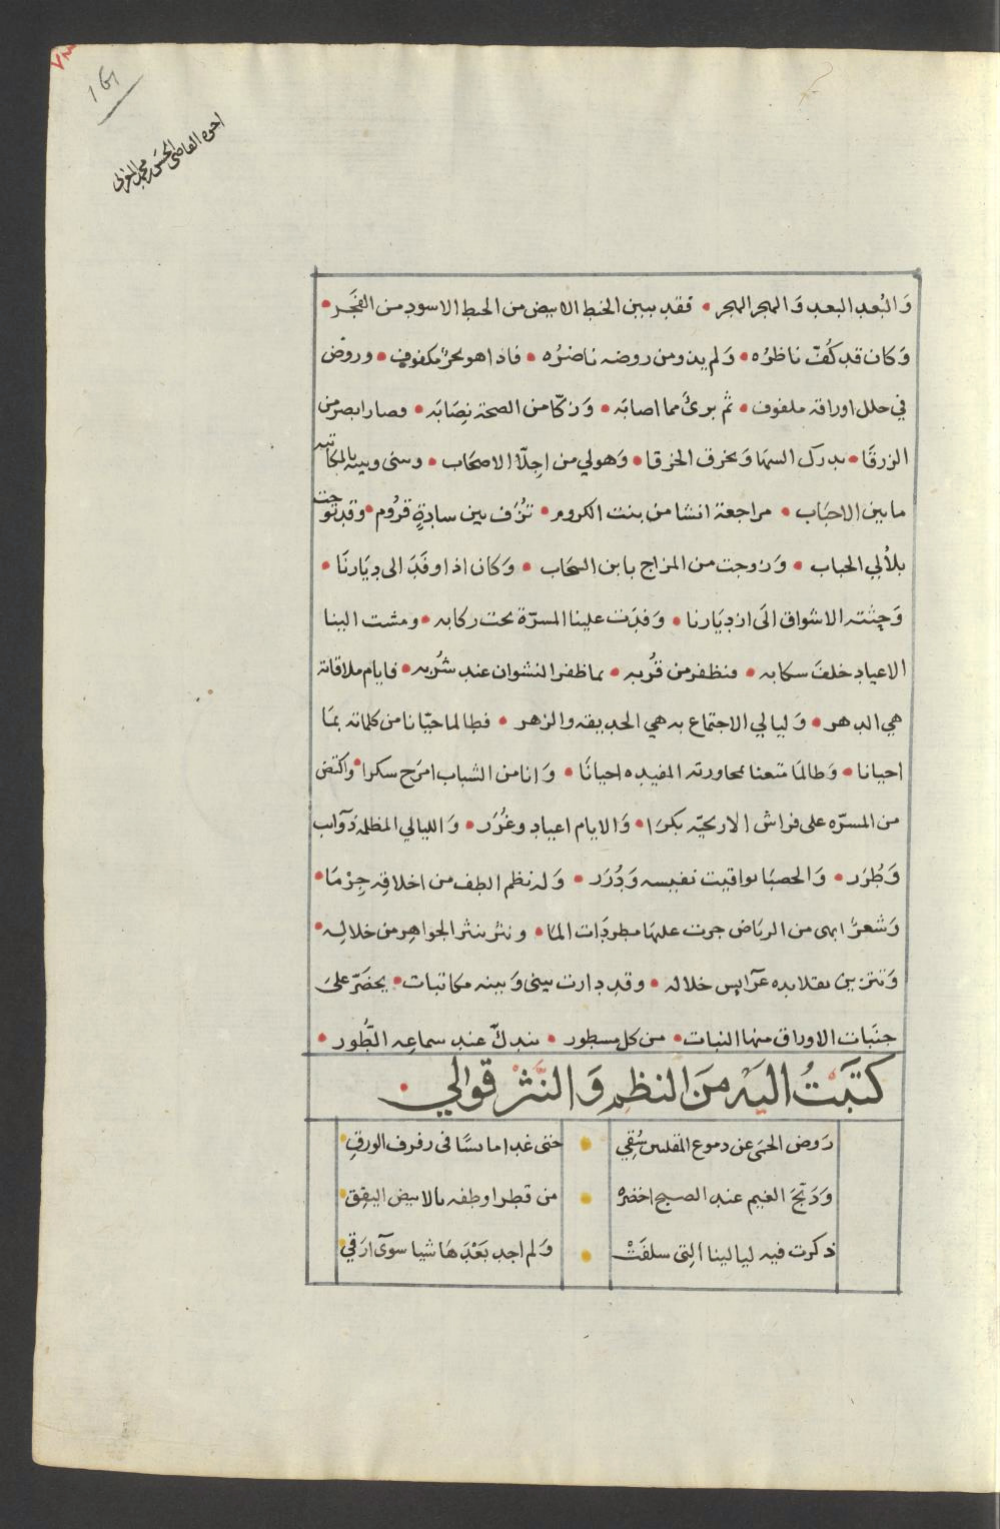 ٧٨
161
اخوه القاضي الحسن بن محمد المغربي
وَالبُعد البعد وَالهجر الهجر • فقد تبين الخيط الابيض من الخيط الاسود من الفَجر •
وَكان قد كُفّ ناظرُه • وَلم يذو من روضه ناضرُه • فاذا هو بحرٌ مكفوف • وروض
في حلل اوراقه ملفوف • ثم برئَ مما اصابَه • وَزكّا من الصحة نِصَابَه • وصار ابصر من
الزرقَا • يدرك السها وَيخرق الخرقا • وَهو لي من اجِلّا الاصحَاب • وبيني وبينه بالمكاتبه
ما بين الاحبَاب • مراجعة انشا من بنت الكروم • تزُف بين سادةٍ قرُوم • وقد توجت
بلألي الحباب • وَزوجت من المزاج بابن السحَاب • وَكان اذا وفَدَ الى ديَارنَا •
وَحثته الاشواق الَى ازديَارنا • وَفدَت علينا المسرّة تحت ركابه • ومشت الينا
الاعياد خلفَ سكابه • فنظفر من قُربه • بما ظفر النشوان عند شُربه • فايام ملاقاته
هي الدهر • وَليالي الاجتماع به هي الحديقه والزهر • فطالما حيّانا من كلماته بمَا
احيانا • وَطالمَا متعنا بمحاورته المفيده احيانًا • وَانا من الشباب امرَح سكرا • واكتض
من المسرّه على فراش الاريحيّه بكرَا • وَالايام اعياد وغُرَر • وَالليالي المظلمة ذوَآئب
وَطُرَر • وَالحصبَا يواقيت نفيسه وَدُرَر • وَله نظم الطف من اخلاقِه جِرْمَا •
وَشعرٌ ابهى من الريَاض جرت عليهَا مطردَات المَا • ونثر ينثر الجواهِر من خلالِه •
وَتتزين بقلايده عَرآيس خلاله • وقد دارت بيني وَبينه مكاتبات • يخضَرّ علىَ
جنَبات الاوراق منها النبات • من كل مسطور • يندكّ عند سماعِه الطُور •
كتَبتُ اليَه منَ النظم وَالنَثر قوالي •
رَوض الحمَى عن دموع المقلتين سُقِي • حتى غدا مايسًا في رفرف الورقِ
وَدَبّجَ الغيم عند الصبح اخضرَه • من قطر اوطفه بالابيض اليقِق
ذكرت فيه ليالينا التِي سلفَتْ • وَلم اجد بَعْدَهَا شيا سوَى ارَقي